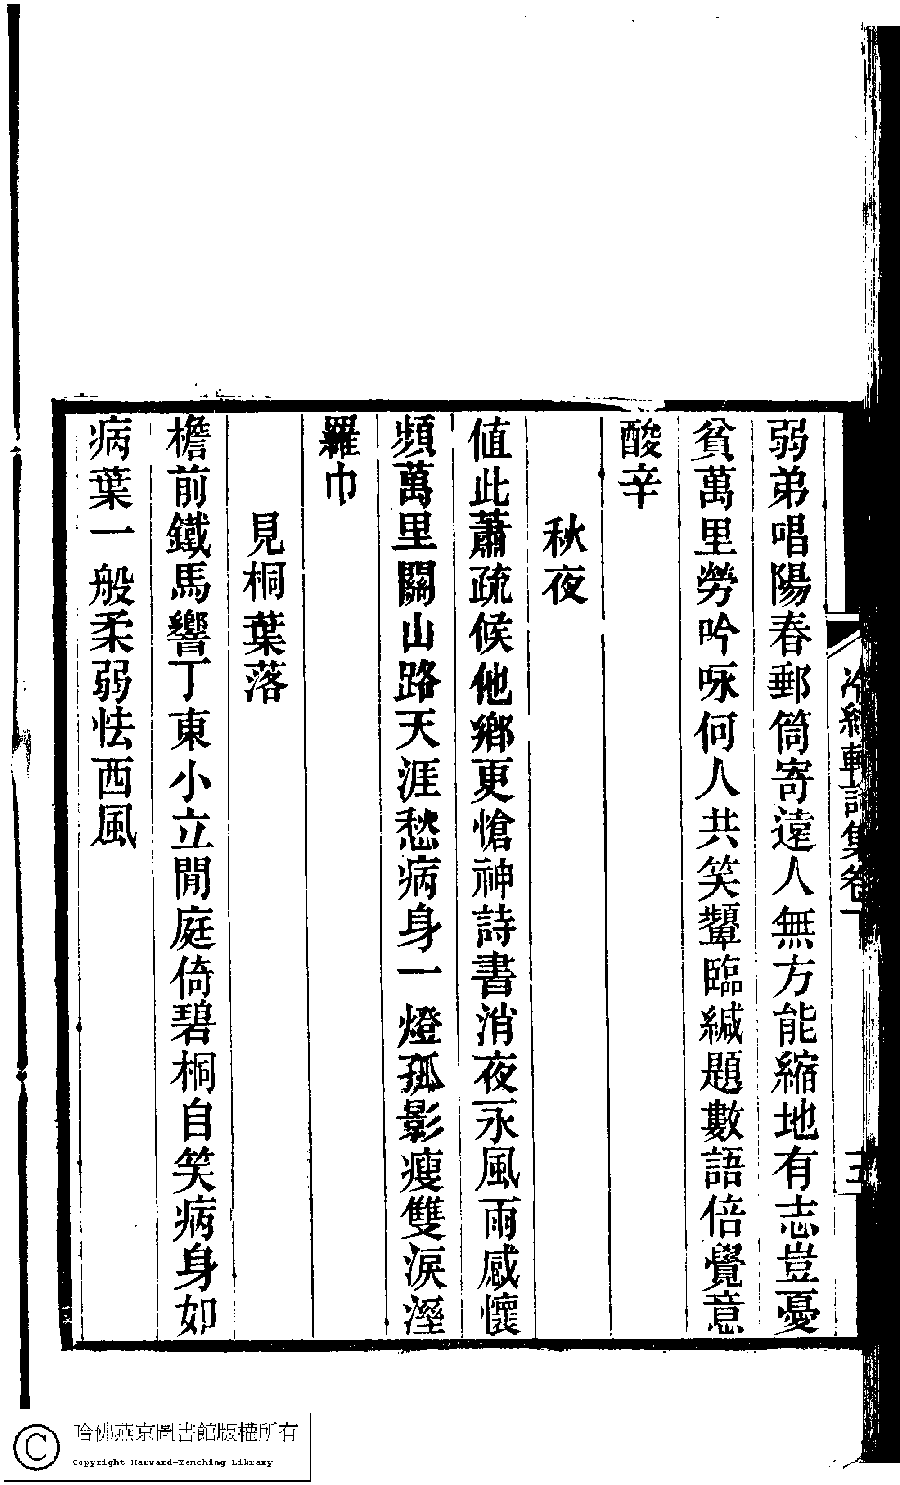 弱弟唱陽春郵筒寄遠人無方能縮地有志豈憂
貧萬里勞吟咏何人共笑顰臨緘題數語倍覺意
酸辛
秋夜
値此蕭疏候他鄉更愴神詩書消夜永風雨感懷
頻萬里關山路天涯愁病身一燈孤影瘦雙淚溼
羅巾
見桐葉落
檐前鐵馬響丁東小立閒庭倚碧桐自笑病身如
病葉一般柔弱怯西風
軒詩集卷一
哈佛燕京圖書館版權所有
Copyright Harvard-Yenching Library